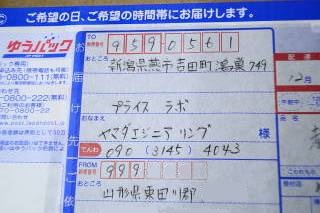 ご希望の日、ご希望の時間帯にお届けします。
ゆうパック
0-0800-111(無料)
-0800-222(無料)
お届け先
TO
郵便番号
9590561
おところ
新潟県燕市吉田町鴻巣749
プライス ラボ
おなまえ
ヤマダエンジニアリング 様
でんわ 090 (3145) 4043
FROM
郵便番号
999
おところ
山形県東田川郡
ご依
12月